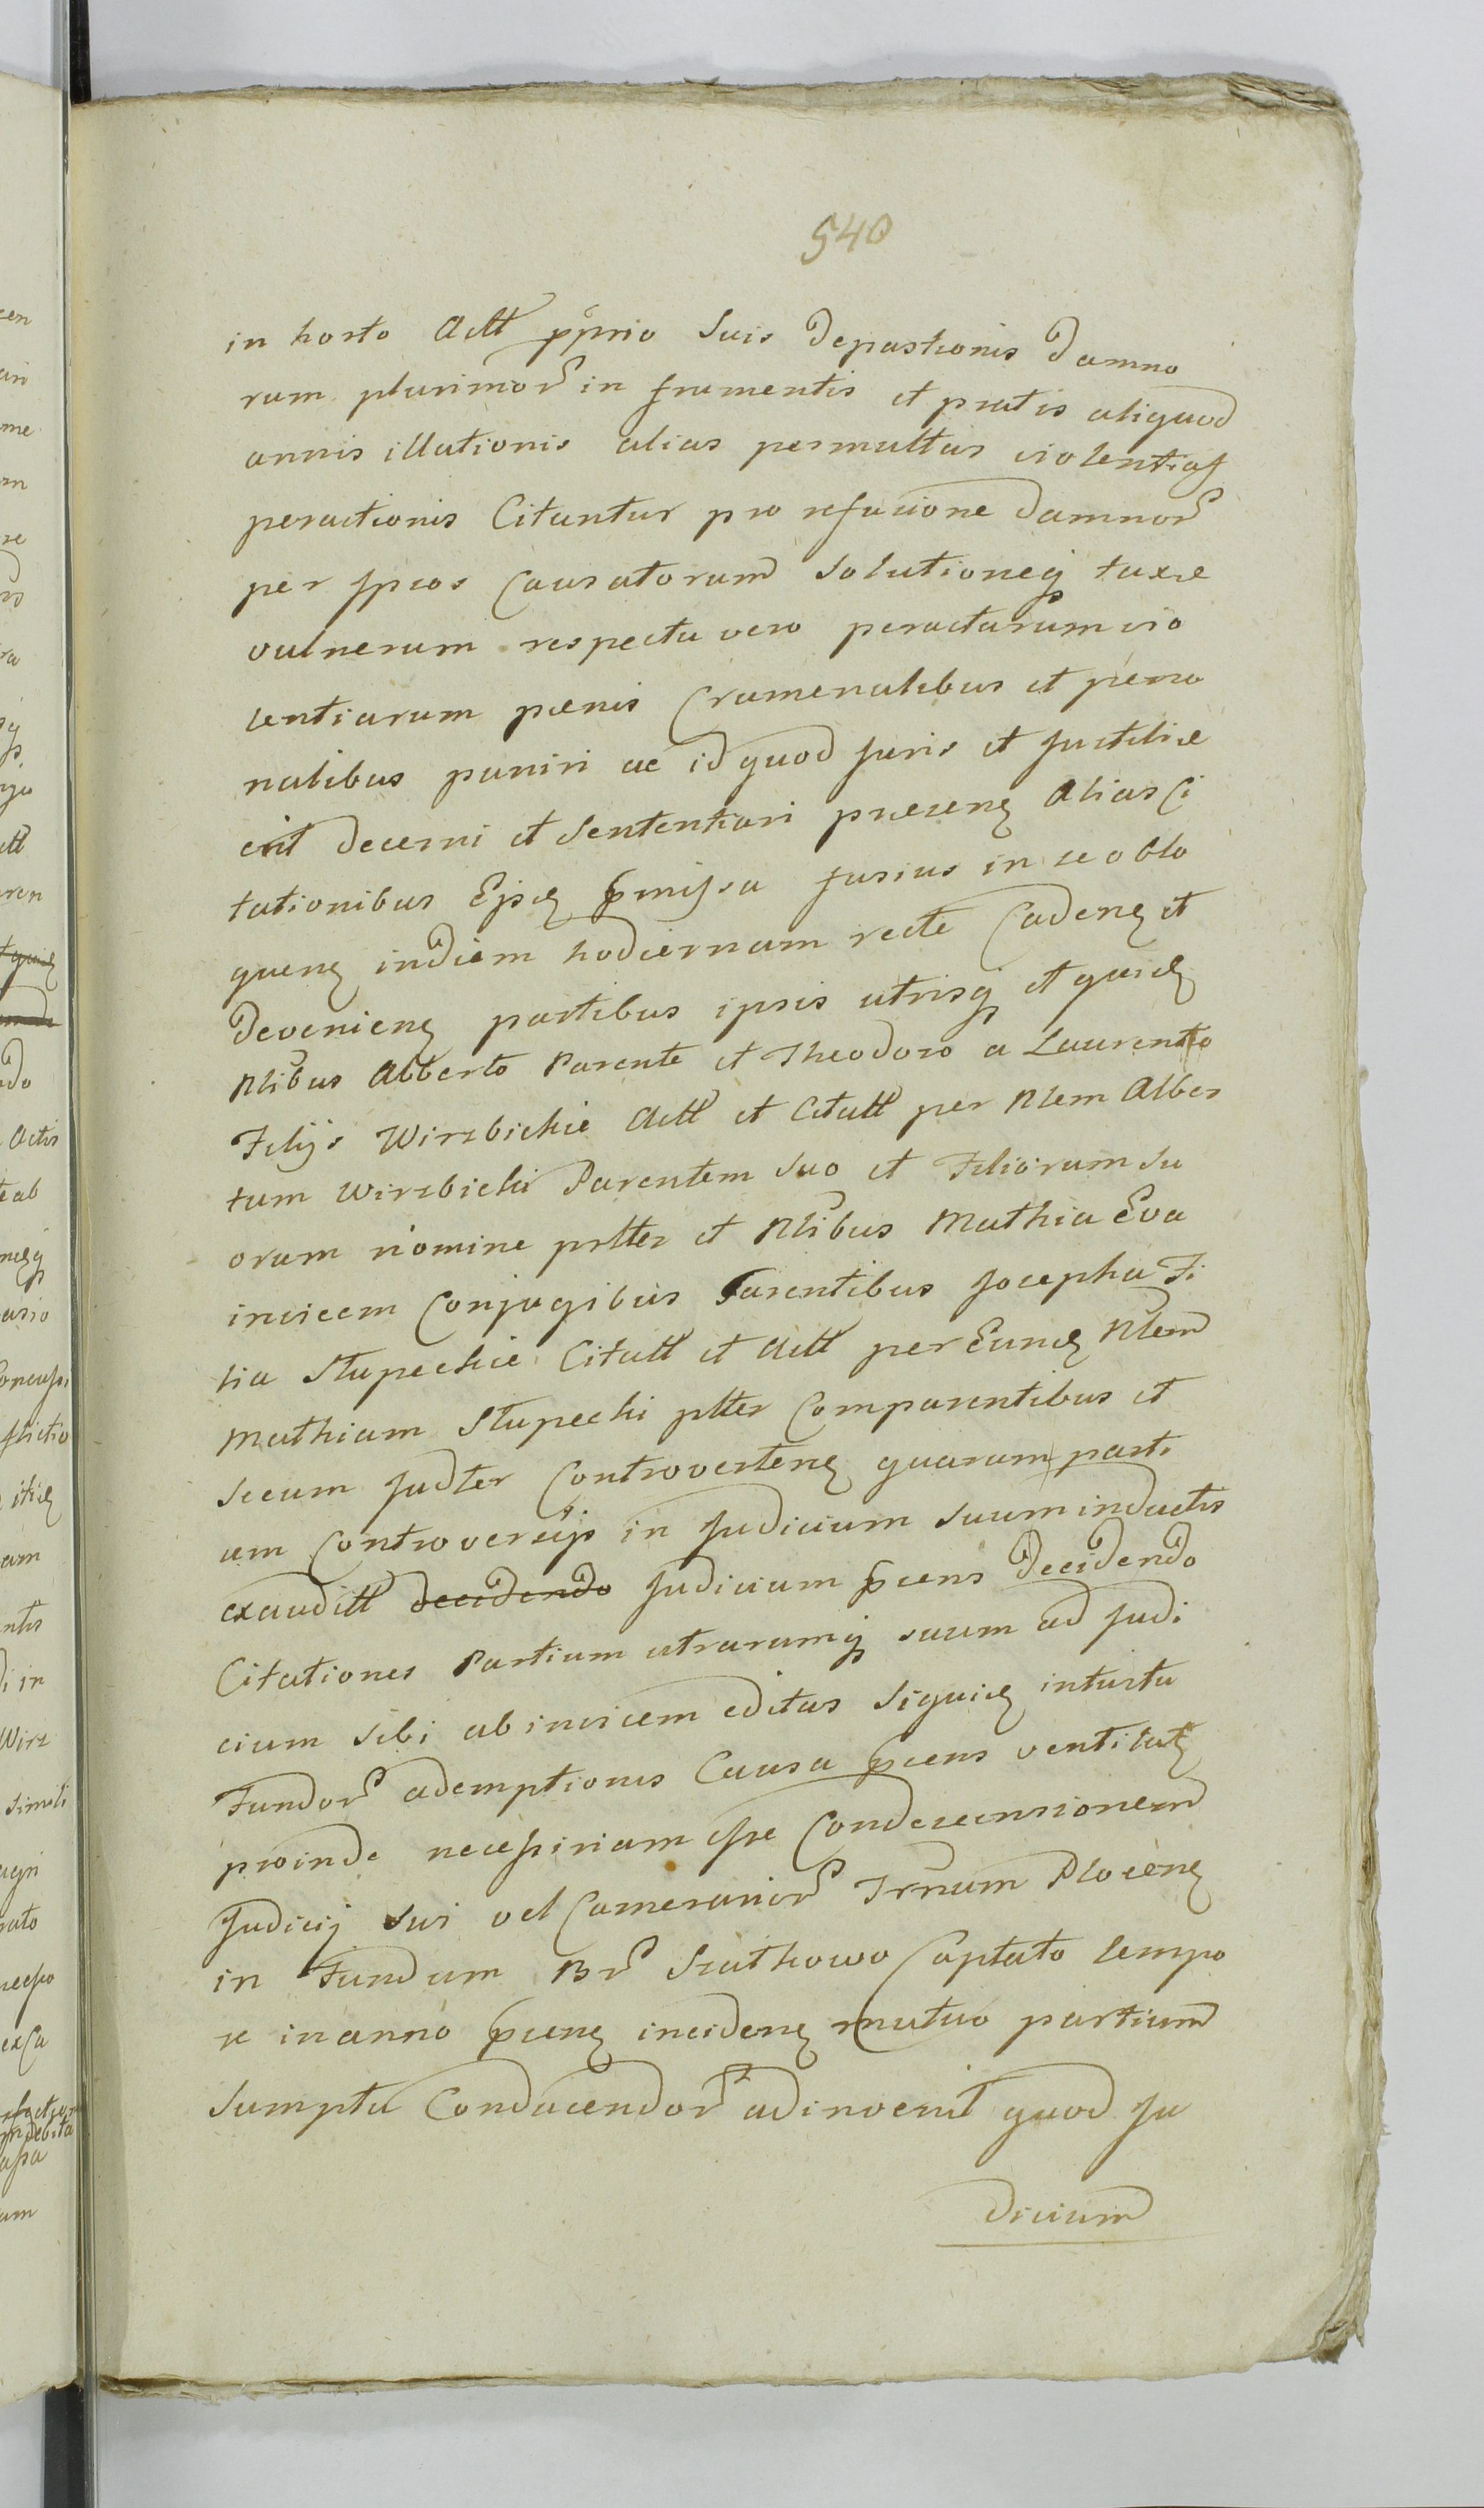 540
in horto Actt pprio Suis Depastionis Damno
rum plurimor in frumentis et pratis aliquod
annis illationis alias permultas violentias
peractionis Citantur pro refusione Damnor
per ipsos Causatorum Solutioneq taxae
vulnerum respectu vero peractarum vio
lentiarum paenis Cramenalibus et paeno
nalibus puniri ac id quod Juris et Justitiae
erit Decerni et Sententiari praesen Alias Ci
tationibus Ejsd pmissa fusius in se obla
quen in Diem hodiernam recte Caden et
Devenien partibus ipsis utrisq et quid
Nlibus Alberto Parente et Theodoro a Laurentio
Filijs Wirzbickie Actt et Citatt per Nlem Alber
tum Wirzbicki Parentem Suo et Filiorum Su
orum nomine prltter et Nlibus Mathia Eva
invicem Conjugibus Parentibus Josepha Fi
lia Stupeckie Citatt et Actt per Eund Nlem
Mathiam Stupecki pltter Comparentibus et
Secum Judter Controverten quarum parti
um Controversijs in Judicium Suum inductis
exauditt decidendo Judicium psens Decidendo
Citationes Partium utrarumq suum ad Judi
cium Sibi ab invicem editas Siquid intuitu
Fundor ademptionis Causa psens ventilat
proinde necessiriam esse Condescensionem
Judicij Sui vel Camerarior Trrnum Plocen
in Fundum Br Szatkowo Captato tempo
re in anno psen inciden mutuo partium
Sumptu Conducendor adinvenit quod Ju
dicium